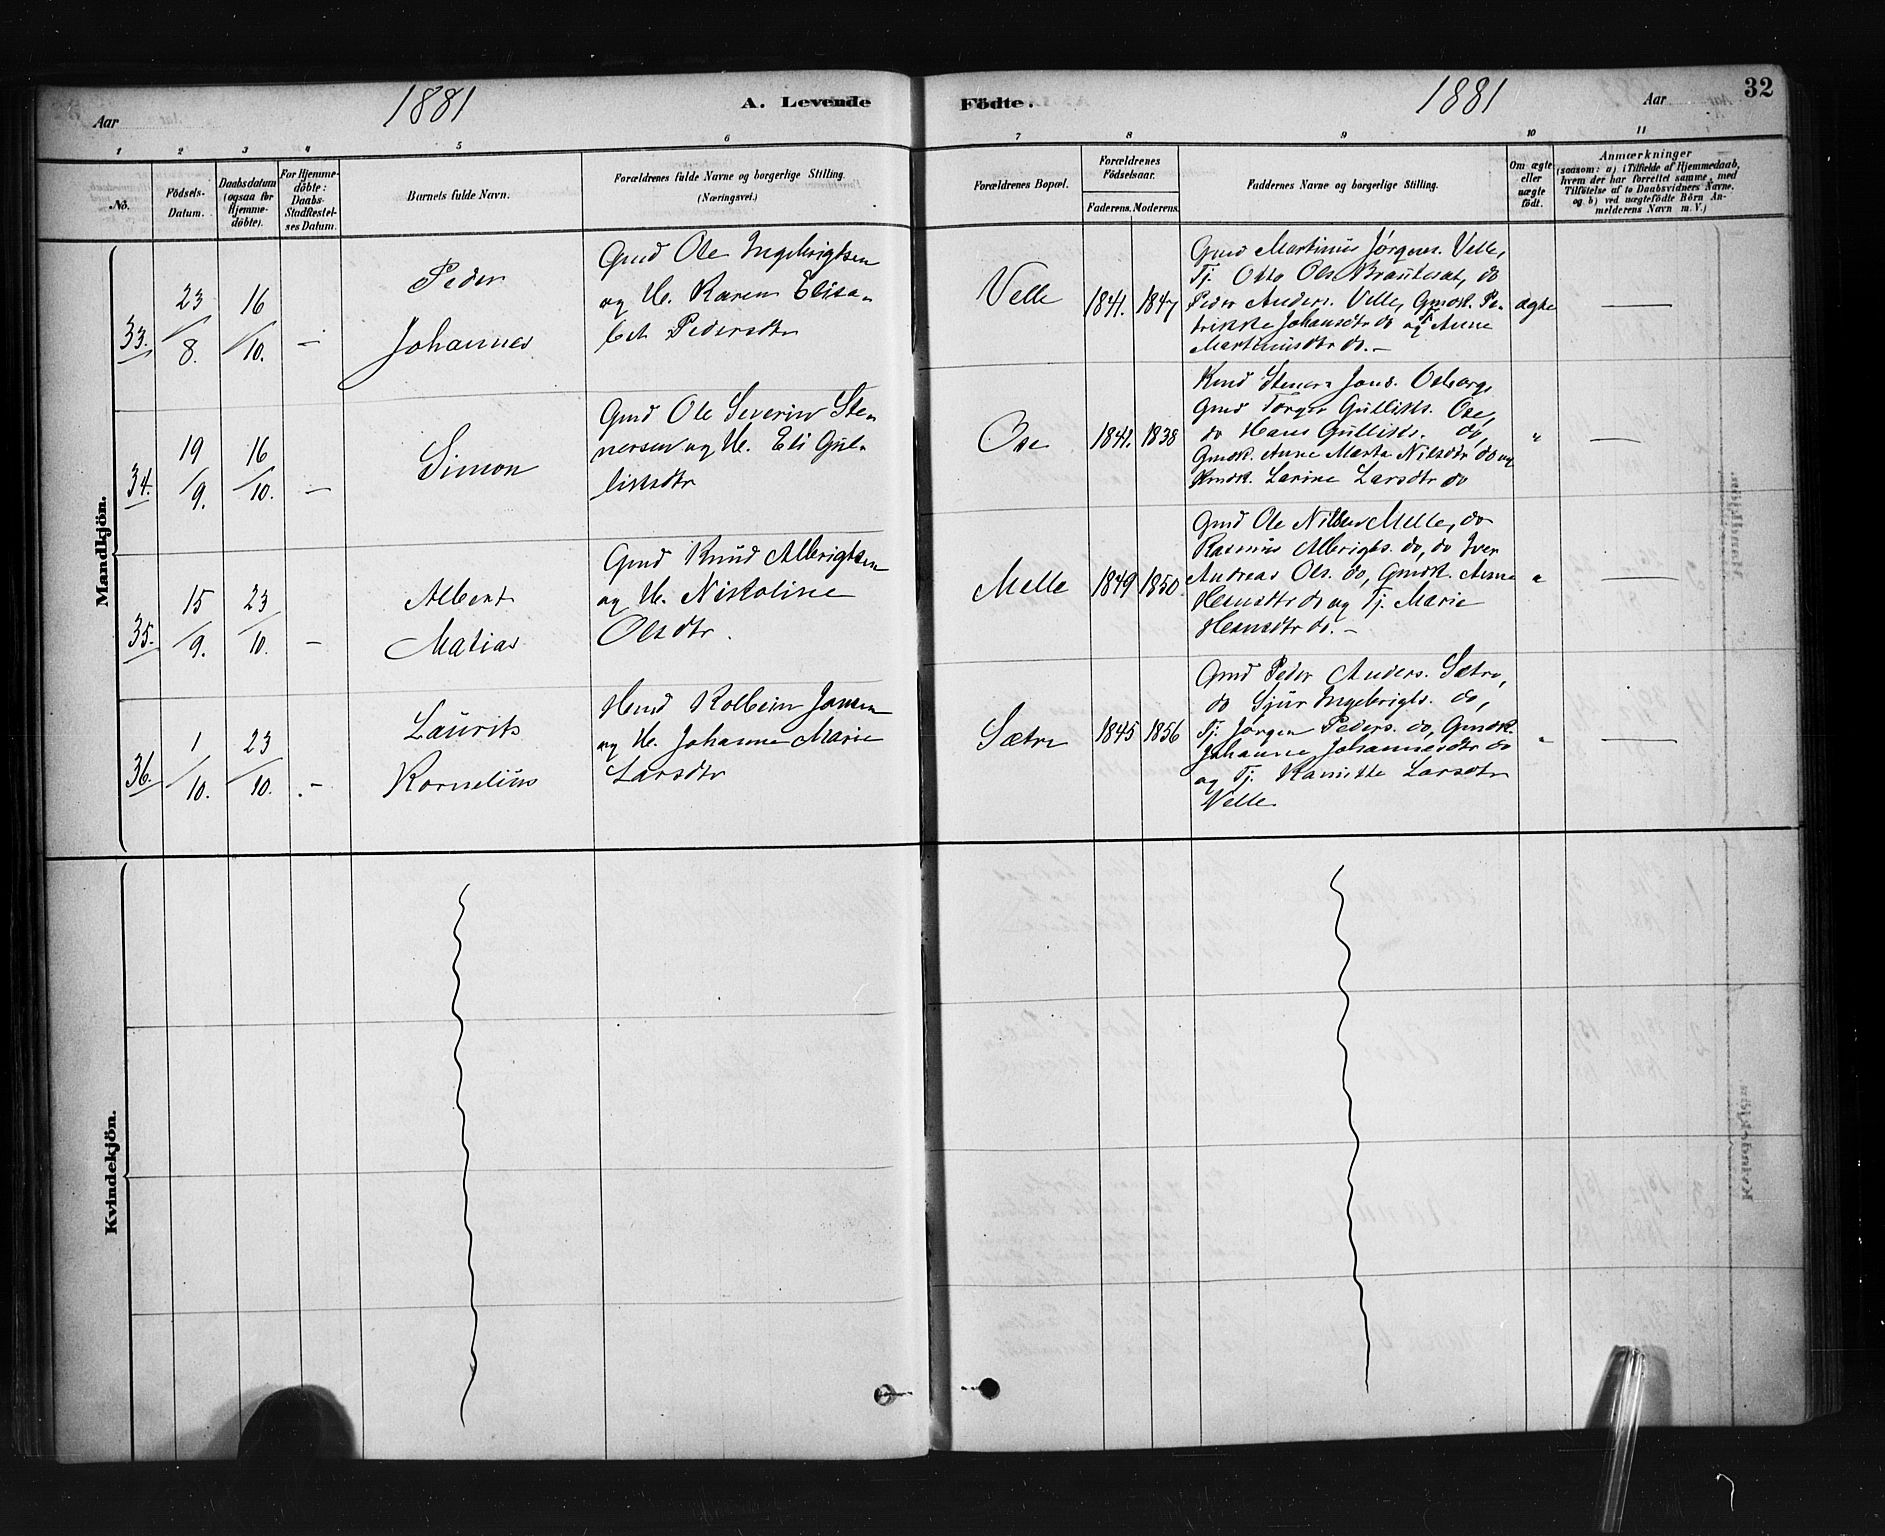 1881 A. Levende Födte. 1881 32
Aar Aar
1 2 3 4 5 6 7 8 9 10 11
No.
Födsels-
Datum.
Daabsdatum
(ogsaa for
Hjemme-
döbte).
For Hjemme-
döbte:
Daabs-
Stadfæstel-
ses Datum.
Barnets fulde Navn.
Forældrenes fulde Navne og borgerlige Stilling.
(Næringsvei.)
Forældrenes Bopæl.
Forældrenes
Födselsaar.
Faderens. Moderens.
Faddernes Navne og borgerlige Stilling.
Om ægte
eller
uægte
födt.
Anmærkninger
(saasom: a) i Tilfælde af Hjemmedaab,
hvem der har forrettet samme, med
Tilföielse af to Daabsvidners Navne,
og b) ved uægtefödte Börn An-
melderens Navn m. V.)
Mandkjön.
33.
23/8.
16/10.
—
Peder
Johannes
Gmd Ole Ingebrigtsen
og H. Karen Elisa-
bet Pedersdtr
Velle
1841. 1847
Gmd Martinus Jørgens. Velle,
Tj. Otto Ols. Brautesat, do
Peder Anders. Velle, Gmdk. Pe-
trikke Johansdtr do og Tj. Anne
Martinusdtr do. —
ægte
—
34.
19/9.
16/10.
—
Simon
Gmd Ole Severin Ste-
nersen og H. Eli Gul-
liksdtr
Ose
1841. 1838
Kmd Stener Jons. Osborg,
Gmd Torger Gulliks. Ose,
do Hans Gulliks. do,
Gmdk. Anne Marta Nilsdtr do og
Kmdk. Larine Larsdtr do
"
—
35.
15/9.
23/10.
—
Albert
Matias
Gmd Knud Albrigtsen
og H. Nikoline
Olsdtr.
Melle
1849 1850.
Gmd Ole Nilsen Melle, do
Rasmus Albrigts. do, do Iver
Andreas Ols. do, Gmdk. Anne
Hansdtr do og Tj. Marie
Hansdtr do. —
"
—
36.
1/10.
23/10.
—
Laurits
Kornelius
Hmd Kolbein Jonsen
og H. Johanne Marie
Larsdtr
Sætre
1845 1856
Gmd Peder Anders. Sætre,
do Sjur Ingebrigts. do,
Tj. Jørgen Peders. do, Gmdk.
Johanne Johannesdtr do
og Tj. Larsdtr
Velle
"
—
Kvindekjön.